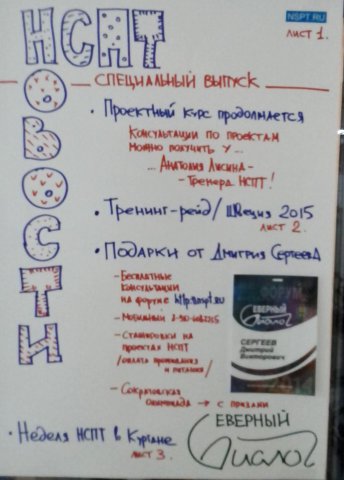 НСПТ
NSPT.RU
ЛИСТ 1.
НОВОСТИ
СПЕЦИАЛЬНЫЙ ВЫПУСК
• Проектный курс продолжается
Консультации по проектам
можно получить у...
... Анатолия Лисина -
- Тренера НСПТ!
• Тренинг-рейд/ Швеция 2015
лист 2.
• Подарки от Дмитрия Сергеева
- Бесплатные
консультации
на форуме http://nspt.ru
- Мобильный
- Стажировки на
проектах НСПТ
/оплата проживания
и питания/
- Сократовская
олимпиада → с призами
ЕВЕРНЫЙ
Диалог
СЕРГЕЕВ
Дмитрий
Викторович
• Неделя НСПТ в Кургане
лист 3.
ЕВЕРНЫЙ
Диалог